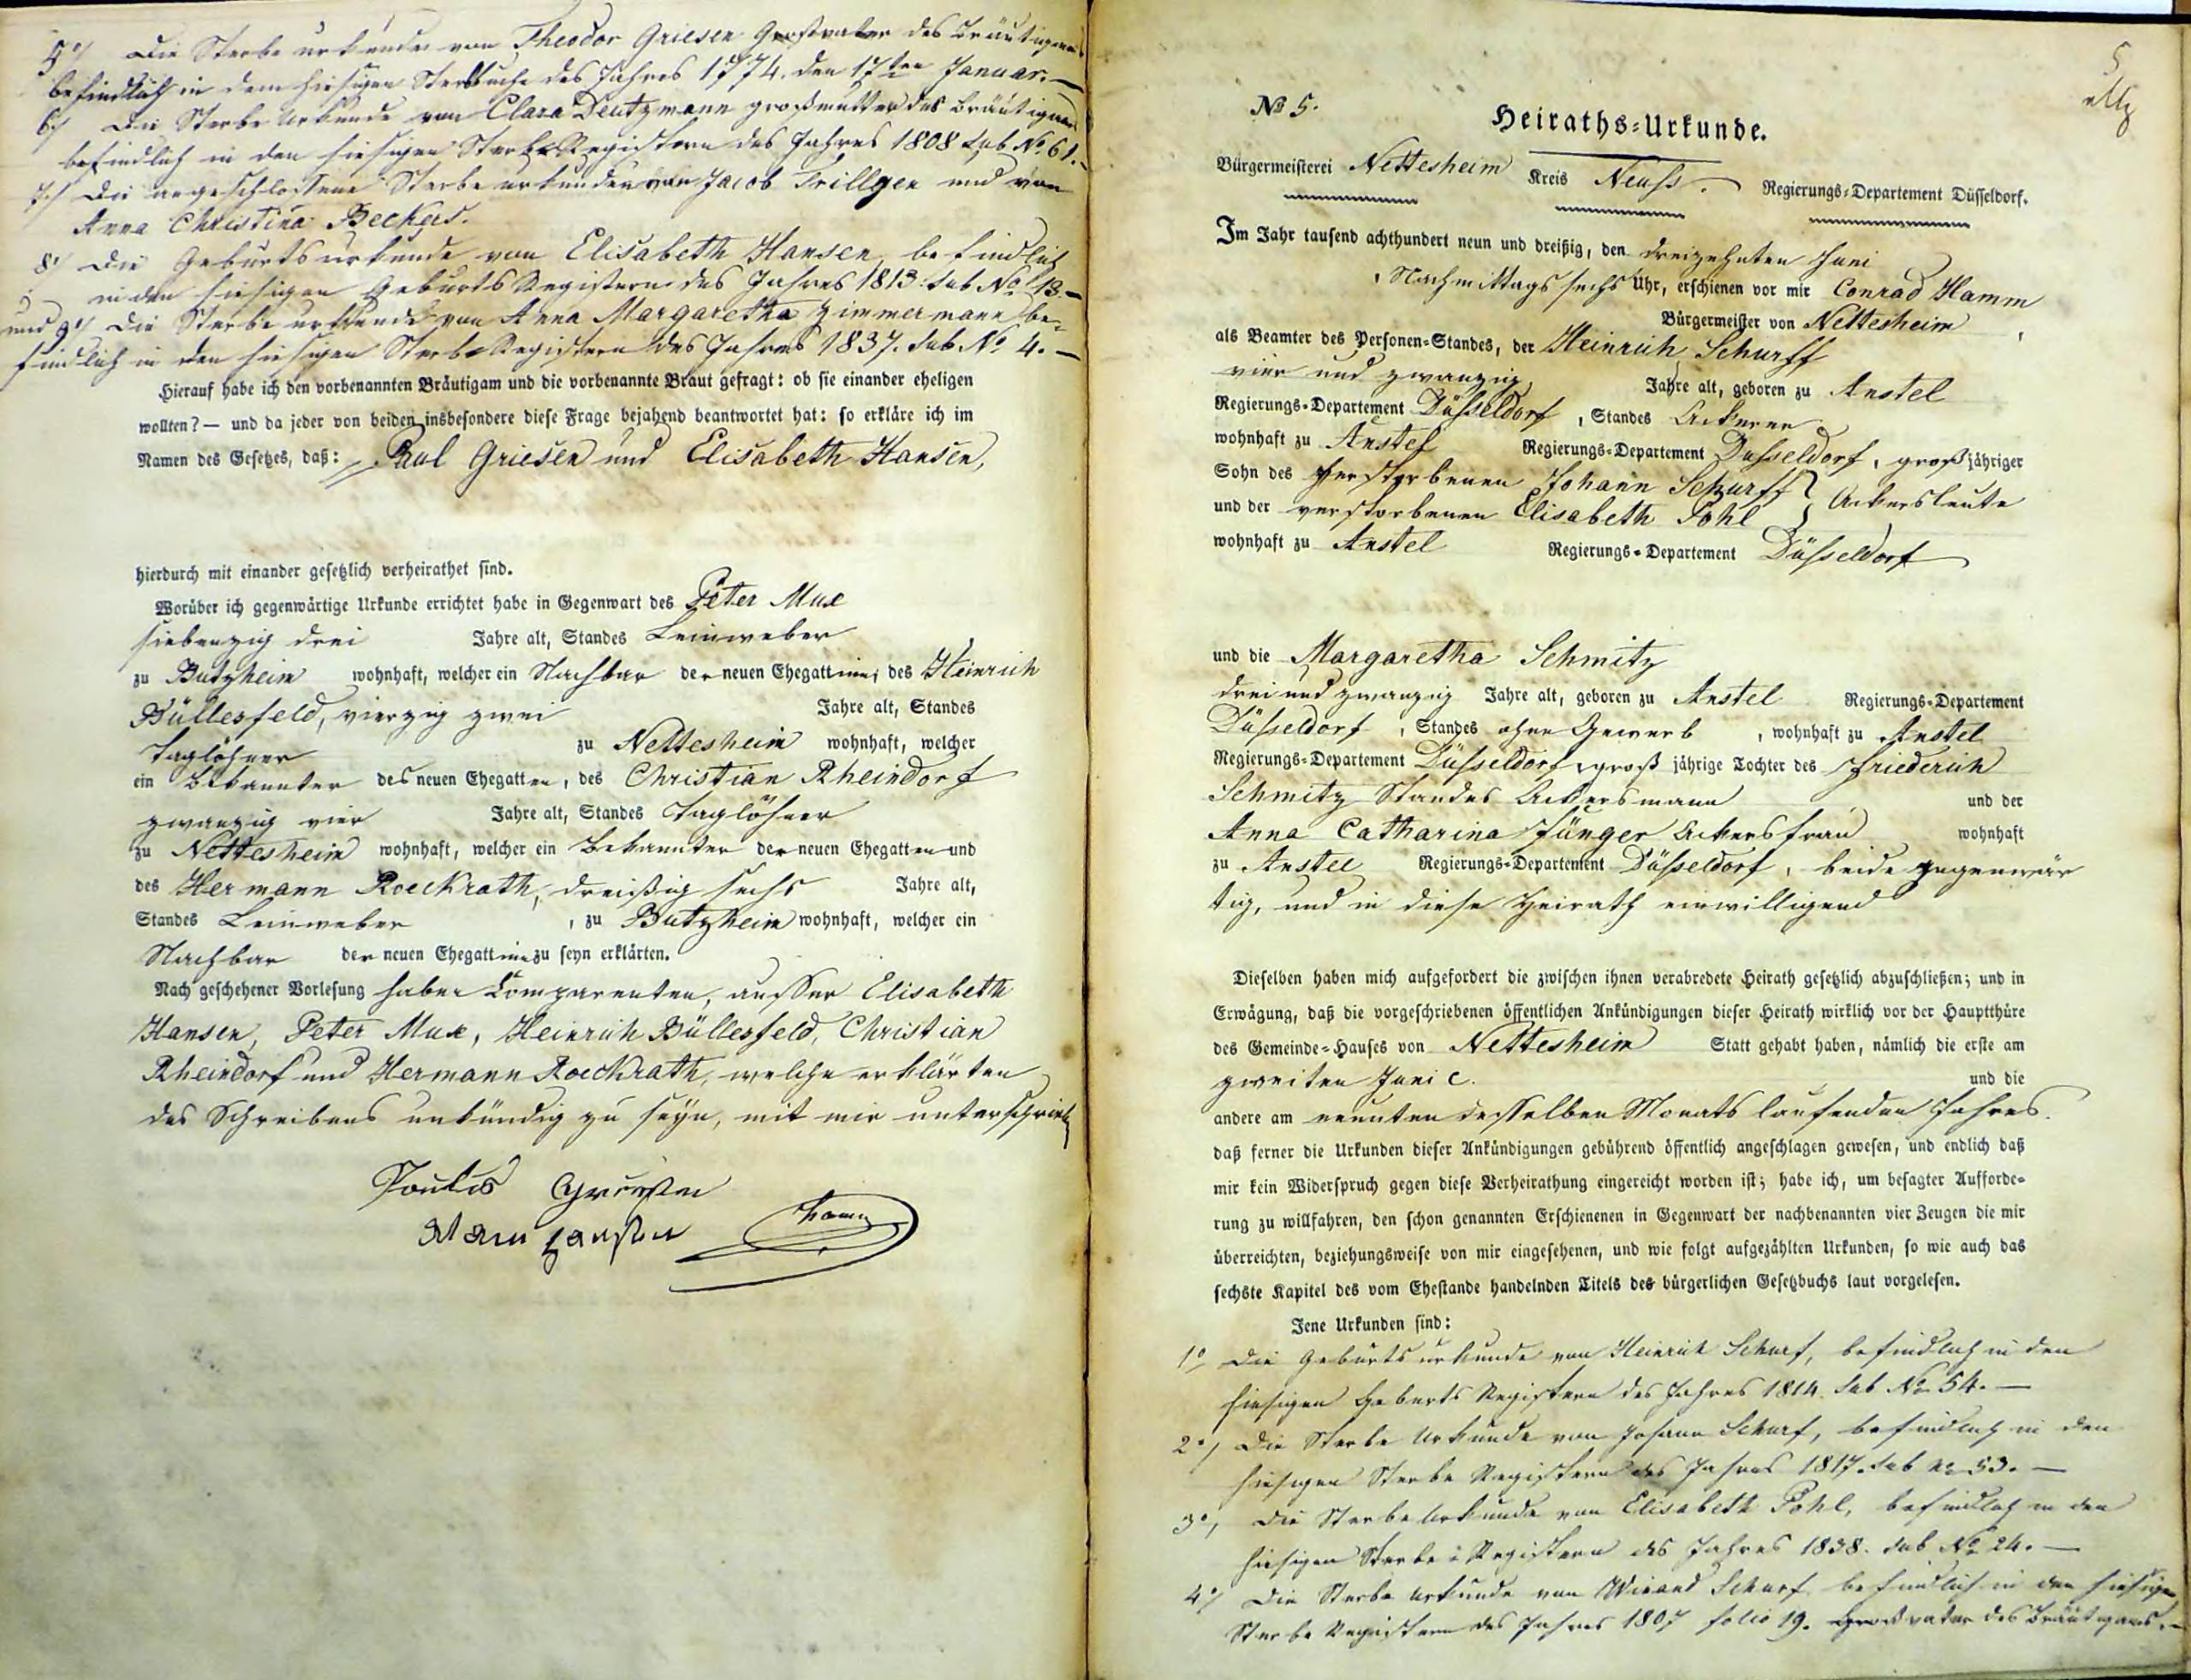 5°/ Die Sterbe urkunde von Theodor Griesen Großvater des Bräutigams
befindlich in dem hiesigen Sterbbuche des Jahres 1774. den 17ten Januar. —
6°/ Die Sterbe Urkunde von Clara Deutzmann großmutter des Bräutigams
befindlich in den hiesigen Sterbe Registern des Jahres 1808 sub No 61. –
7°/ Die angeschlossene Sterbe urkunden von Jacob Trillgen und von
Anna Christina Beckers.
8°/ Die Geburts urkunde von Elisabeth Hansen, befindlich
in den hiesigen Geburts Registern des Jahres 1813. sub No 13. –
und 9°/ Die Sterbe urkunde von Anna Margaretha Zimmermann be-
findlich in den hiesigen Sterbe Registern des Jahres 1837. sub No 4. —
Hierauf habe ich den vorbenannten Bräutigam und die vorbenannte Braut gefragt: ob sie einander eheligen
wollten? — und da jeder von beiden insbesondere diese Frage bejahend beantwortet hat: so erkläre ich im
Namen des Gesetzes, daß: Paul Griesen und Elisabeth Hansen,
hierdurch mit einander gesetzlich verheirathet sind.
Worüber ich gegenwärtige Urkunde errichtet habe in Gegenwart des Peter Mux
siebenzig drei Jahre alt, Standes Leinweber
zu Butzheim wohnhaft, welcher ein Nachbar der neuen Ehegattinn, des Heinrich
Büllesfeld, vierzig zwei Jahre alt, Standes
Taglöhner zu Nettesheim wohnhaft, welcher
ein Bekannter des neuen Ehegatten, des Christian Rheindorf
zwanzig vier Jahre alt, Standes Taglöhner
zu Nettesheim wohnhaft, welcher ein Bekannter der neuen Ehegatten und
des Hermann Roeckrath, dreißig sechs Jahre alt,
Standes Leinweber, zu Butzheim wohnhaft, welcher ein
Nachbar der neuen Ehegattinn zu seyn erklärten.
Nach geschehener Vorlesung haben Comparenten, ausser Elisabeth
Hansen, Peter Mux, Heinrich Büllesfeld, Christian
Rheindorf und Hermann Roeckrath, welche erklärten
des Schreibens unkündig zu seyn, mit mir unterschrieben
Hamm
5
No 5.
Heiraths-Urkunde.
Bürgermeisterei Nettesheim Kreis Neuss. Regierungs-Departement Düsseldorf.
Im Jahr tausend achthundert neun und dreißig, den dreizehnten Juni
Nachmittags sechs Uhr, erschienen vor mir Conrad Hamm
Bürgermeister von Nettesheim,
als Beamter des Personen-Standes, der Heinrich Schurff
vier und zwanzig Jahre alt, geboren zu Anstel
Regierungs-Departement Düsseldorf, Standes Ackerer
wohnhaft zu Anstel Regierungs-Departement Düsseldorf, großjähriger
Sohn des verstorbenen Johann Schurff
und der verstorbenen Elisabeth Pohl } Ackersleute
wohnhaft zu Anstel Regierungs-Departement Düsseldorf
und die Margaretha Schmitz
drei und zwanzig Jahre alt, geboren zu Anstel Regierungs-Departement
Düsseldorf, Standes ohne Gewerb, wohnhaft zu Anstel
Regierungs-Departement Düsseldorf, groß jährige Tochter des Friederich
Schmitz Standes Ackersmann und der
Anna Catharina Jünger Ackersfrau wohnhaft
zu Anstel Regierungs-Departement Düsseldorf, beide gegenwär
tig, und in diese Heirath einwilligend
Dieselben haben mich aufgefordert die zwischen ihnen verabredete Heirath gesetzlich abzuschließen; und in
Erwägung, daß die vorgeschriebenen öffentlichen Ankündigungen dieser Heirath wirklich vor der Hauptthüre
des Gemeinde-Hauses von Nettesheim Statt gehabt haben, nämlich die erste am
zweiten Juni c. und die
andere am neunten desselben Monats laufenden Jahres.
daß ferner die Urkunden dieser Ankündigungen gebührend öffentlich angeschlagen gewesen, und endlich daß
mir kein Widerspruch gegen diese Verheirathung eingereicht worden ist; habe ich, um besagter Aufforde-
rung zu willfahren, den schon genannten Erschienenen in Gegenwart der nachbenannten vier Zeugen die mir
überreichten, beziehungsweise von mir eingesehenen, und wie folgt aufgezählten Urkunden, so wie auch das
sechste Kapitel des vom Ehestande handelnden Titels des bürgerlichen Gesetzbuchs laut vorgelesen.
Jene Urkunden sind:
1°/ Die Geburts urkunde von Heinrich Schurf, befindlich in den
hiesigen Geburts Registern des Jahres 1814. sub No 54. —
2°/ Die Sterbe Urkunde von Johann Schurf, befindlich in den
hiesigen Sterbe Registern des Jahres 1817. sub No 53. —
3°/ Die Sterbe Urkunde von Elisabeth Pohl, befindlich in den
hiesigen Sterbe Registern des Jahres 1838. sub No 24. —
4°/ Die Sterbe Urkunde von Wirand Schurf befindlich in den hiesigen
Sterbe Registern des Jahres 1807 folio 19. Großvater des Bräutigams. –